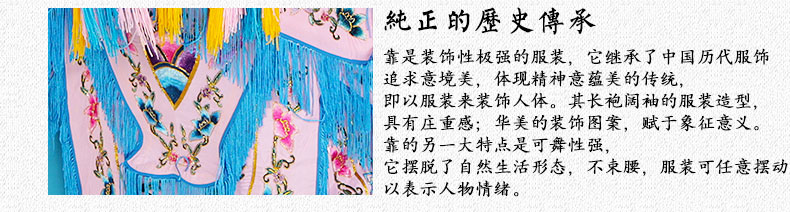 純正的歷史傳承
靠是装饰性极强的服装，它继承了中国历代服饰
追求意境美，体现精神意蕴美的传统，
即以服装来装饰人体。其长袍阔袖的服装造型，
具有庄重感；华美的装饰图案，赋于象征意义。
靠的另一大特点是可舞性强，
它摆脱了自然生活形态，不束腰，服装可任意摆动
以表示人物情绪。